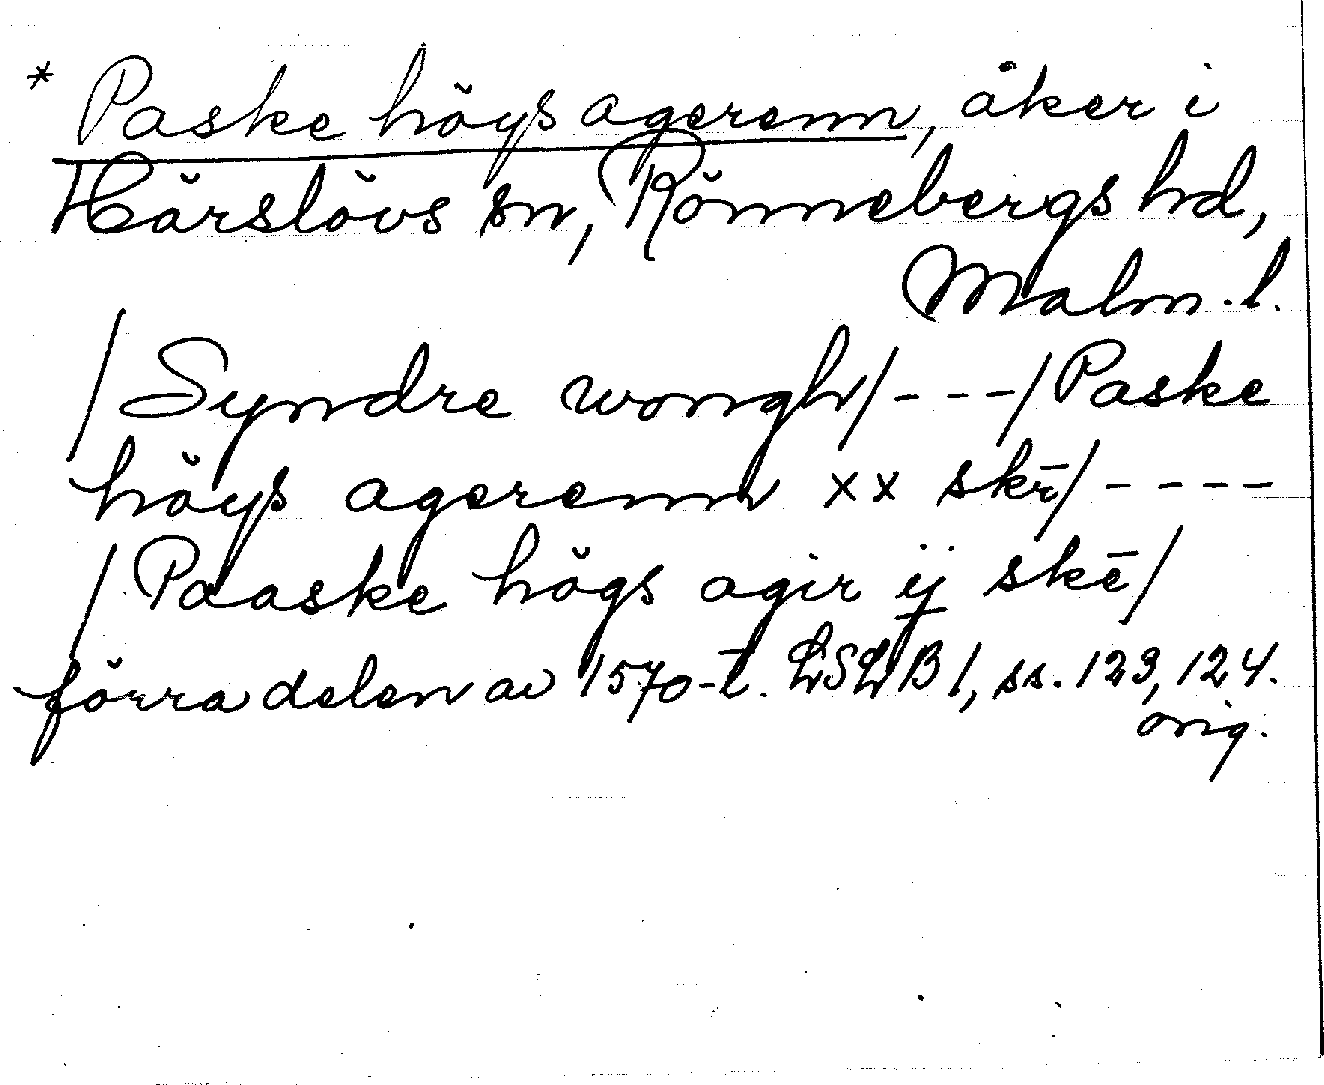 * Paske höys agerenn, åker i
Härslövs sn, Rönnebergs hd,
Malm. l.
/Syndre wongh/---/Paske
höys agerenn xx skr̄/----
/Paaske högs agir ij skē/
förra delen av 1570-t. LSLB 1, ss. 123, 124.
orig.